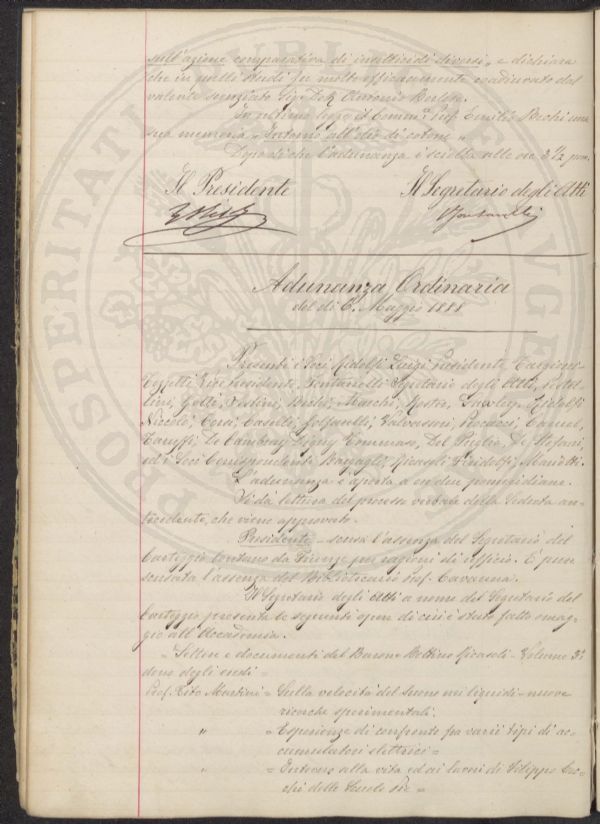 sull'azione comparativa di insetticidi diversi, e dichiara
che in nelli studi fu molto efficacemente coadiuvato dal
valente scienziato Sigr. Dott. Antonio Berlese.
In ultimo legge il Comm. Prof. Emilio Bechi una
sua memoria "Intorno all'olio di cotone"
Dopo di che l'adunanza è sciolta alle ore 3 1/2 pom.
Il Presidente
Il Segretario degli Atti
Adunanza Ordinaria
del dì 6. Maggio 1888
Presenti i Soci Ridolfi Luigi Presidente, Targioni-
Tozzetti Vice Presidente, Fontanelli Segretario degli Atti,
Gotti, Bechi, Marchi, Ridolfi
Niccolò, Caselli, Golfarelli, Valvassori, Caruel,
De Cambray Digny Tommaso, Del Puglia, De Stefani,
ed i Soci Corrispondenti Bargagli, Ricasoli Firidolfi, Mariotti.
L'adunanza è aperta a ore due pomeridiane.
Si dà lettura del processo verbale della Seduta an-
tecedente, che viene approvato.
Presidente - scusa l'assenza del Segretario del
Carteggio lontano da Firenze per ragioni di ufficio. È pure
scusata l'assenza del Bibliotecario Prof. Cavanna.
Il Segretario degli Atti a nome del Segretario del
Carteggio presenta le seguenti opere di cui è stato fatto omag-
gio all'Accademia.
Lettere e documenti del Barone Bettino Ricasoli - Volume 3°
dono degli eredi =
Prof. Tito Martini = Sulla velocità del suono nei liquidi - nuove
ricerche sperimentali.
" = Esperienze di confronto fra varii tipi di ac-
cumulatori elettrici =
" = Intorno alla vita ed ai lavori di Filippo
delle Scuole Pie =